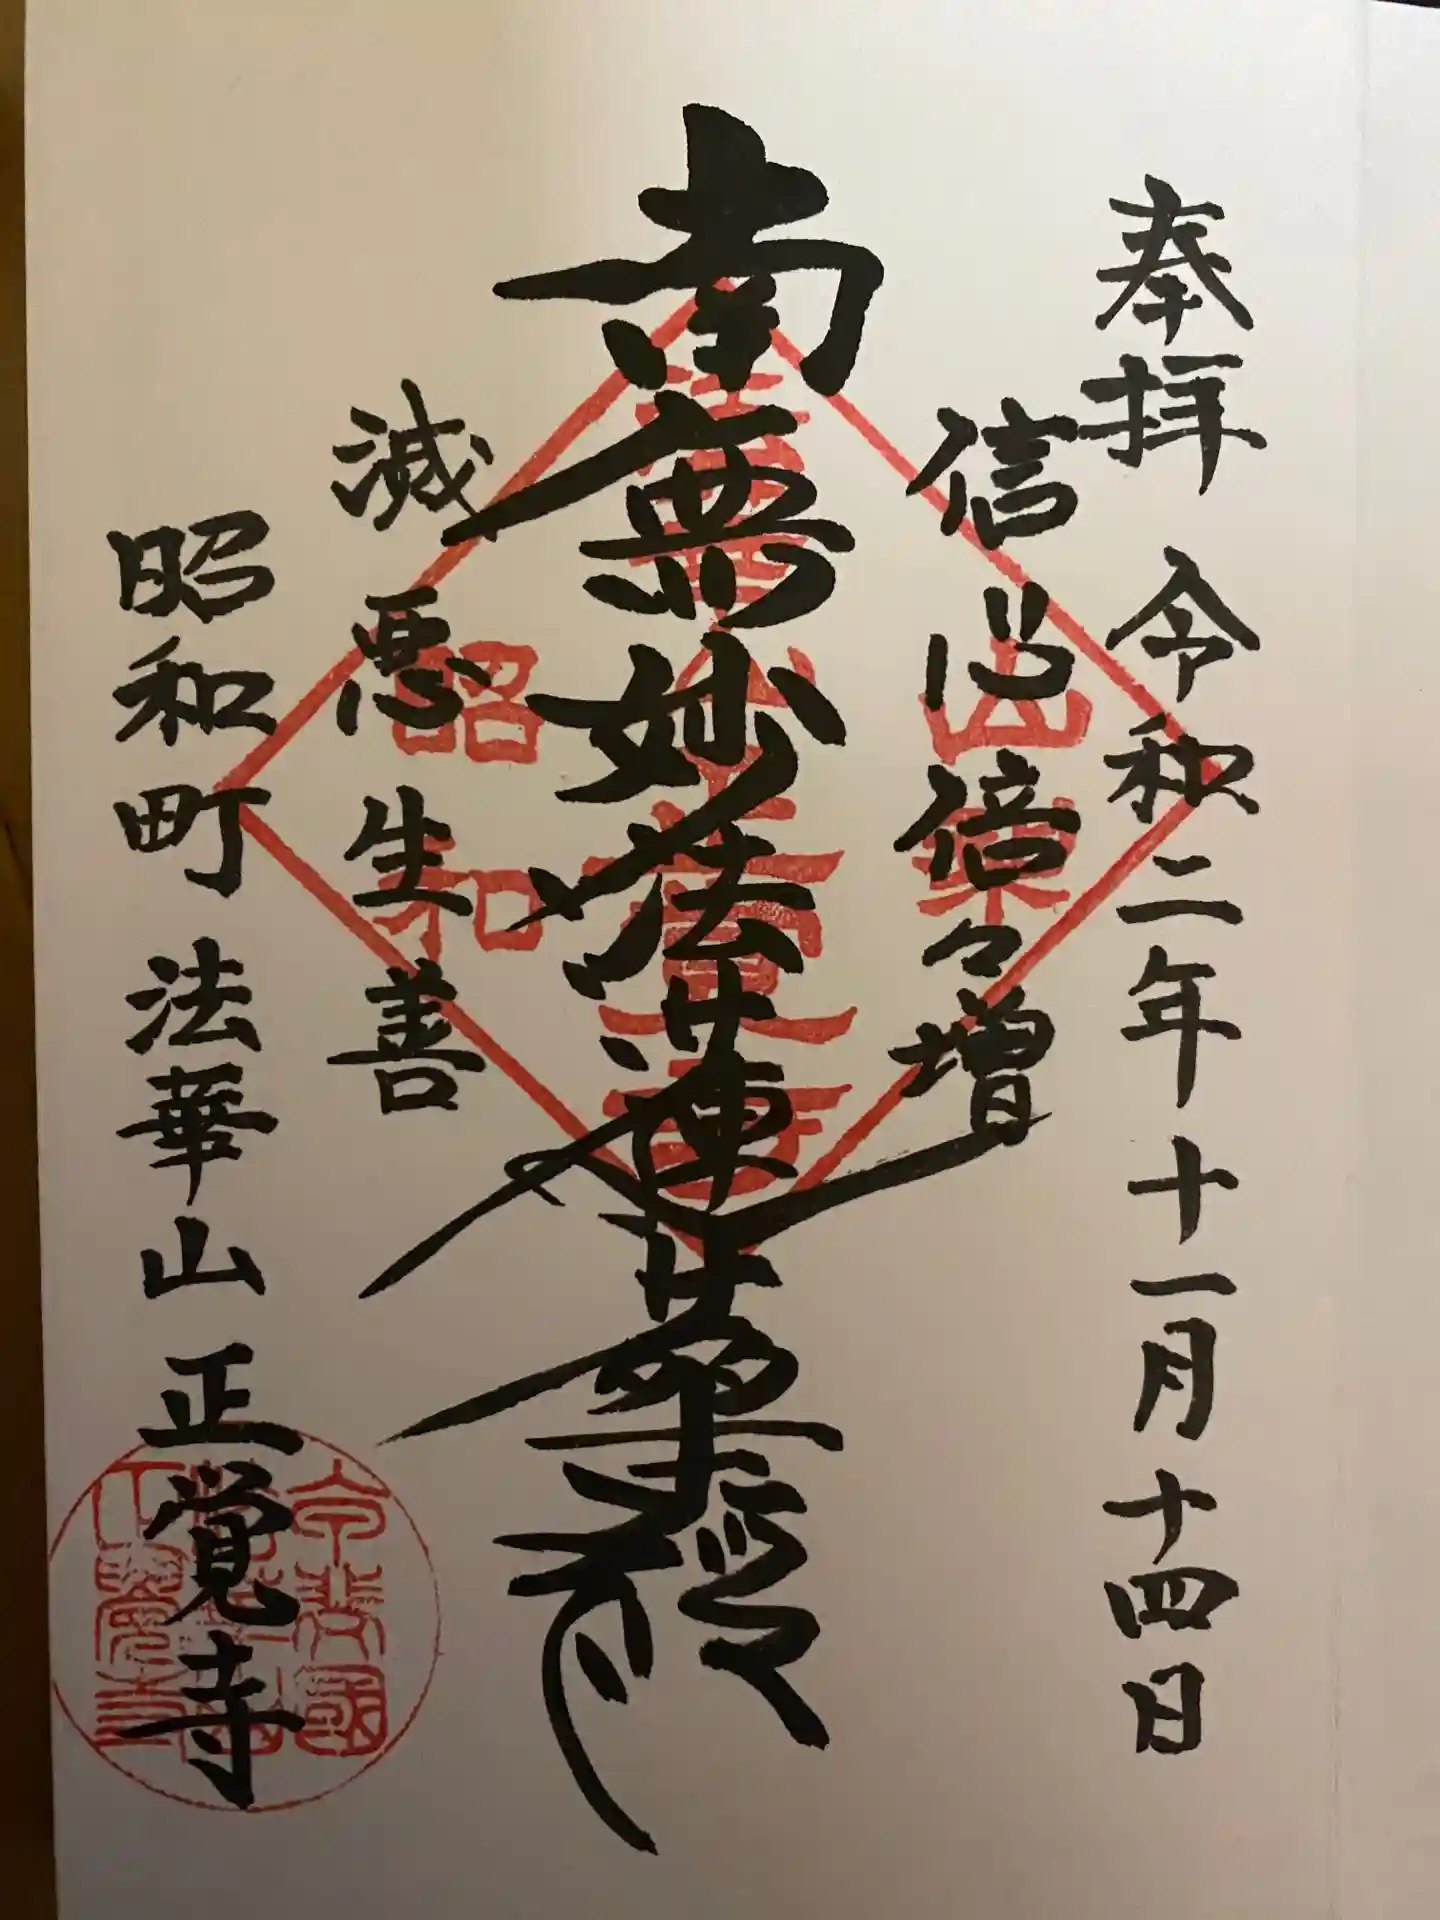 奉拝 令和二年十一月十四日
信心倍々増
南無妙法蓮華経
滅悪生善
昭和町 法華山 正覚寺
山梨
昭和